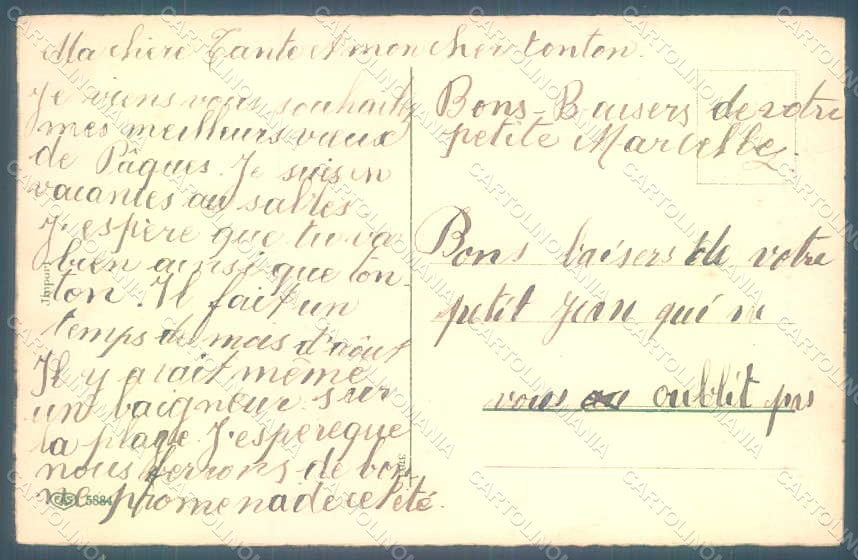 Ma chère Tante et mon cher tonton.
Je viens vous souhaiter
mes meilleurs vœux
de Pâques. Je suis en
vacantes au sables
J'espère que tu va
bien ainsi que ton-
ton. Il fait un
temps de mois d'août
Il y avait même
un baigneur sur
la plage J'espere que
nous ferrons de bon
ne promenade cet été.
Bons Baisers de votre
petite Marcelle.
Bons baisers de votre
petit Jean qui ne
vous oublit pas
Import
EAS 5884
CARTOLINOMANIA